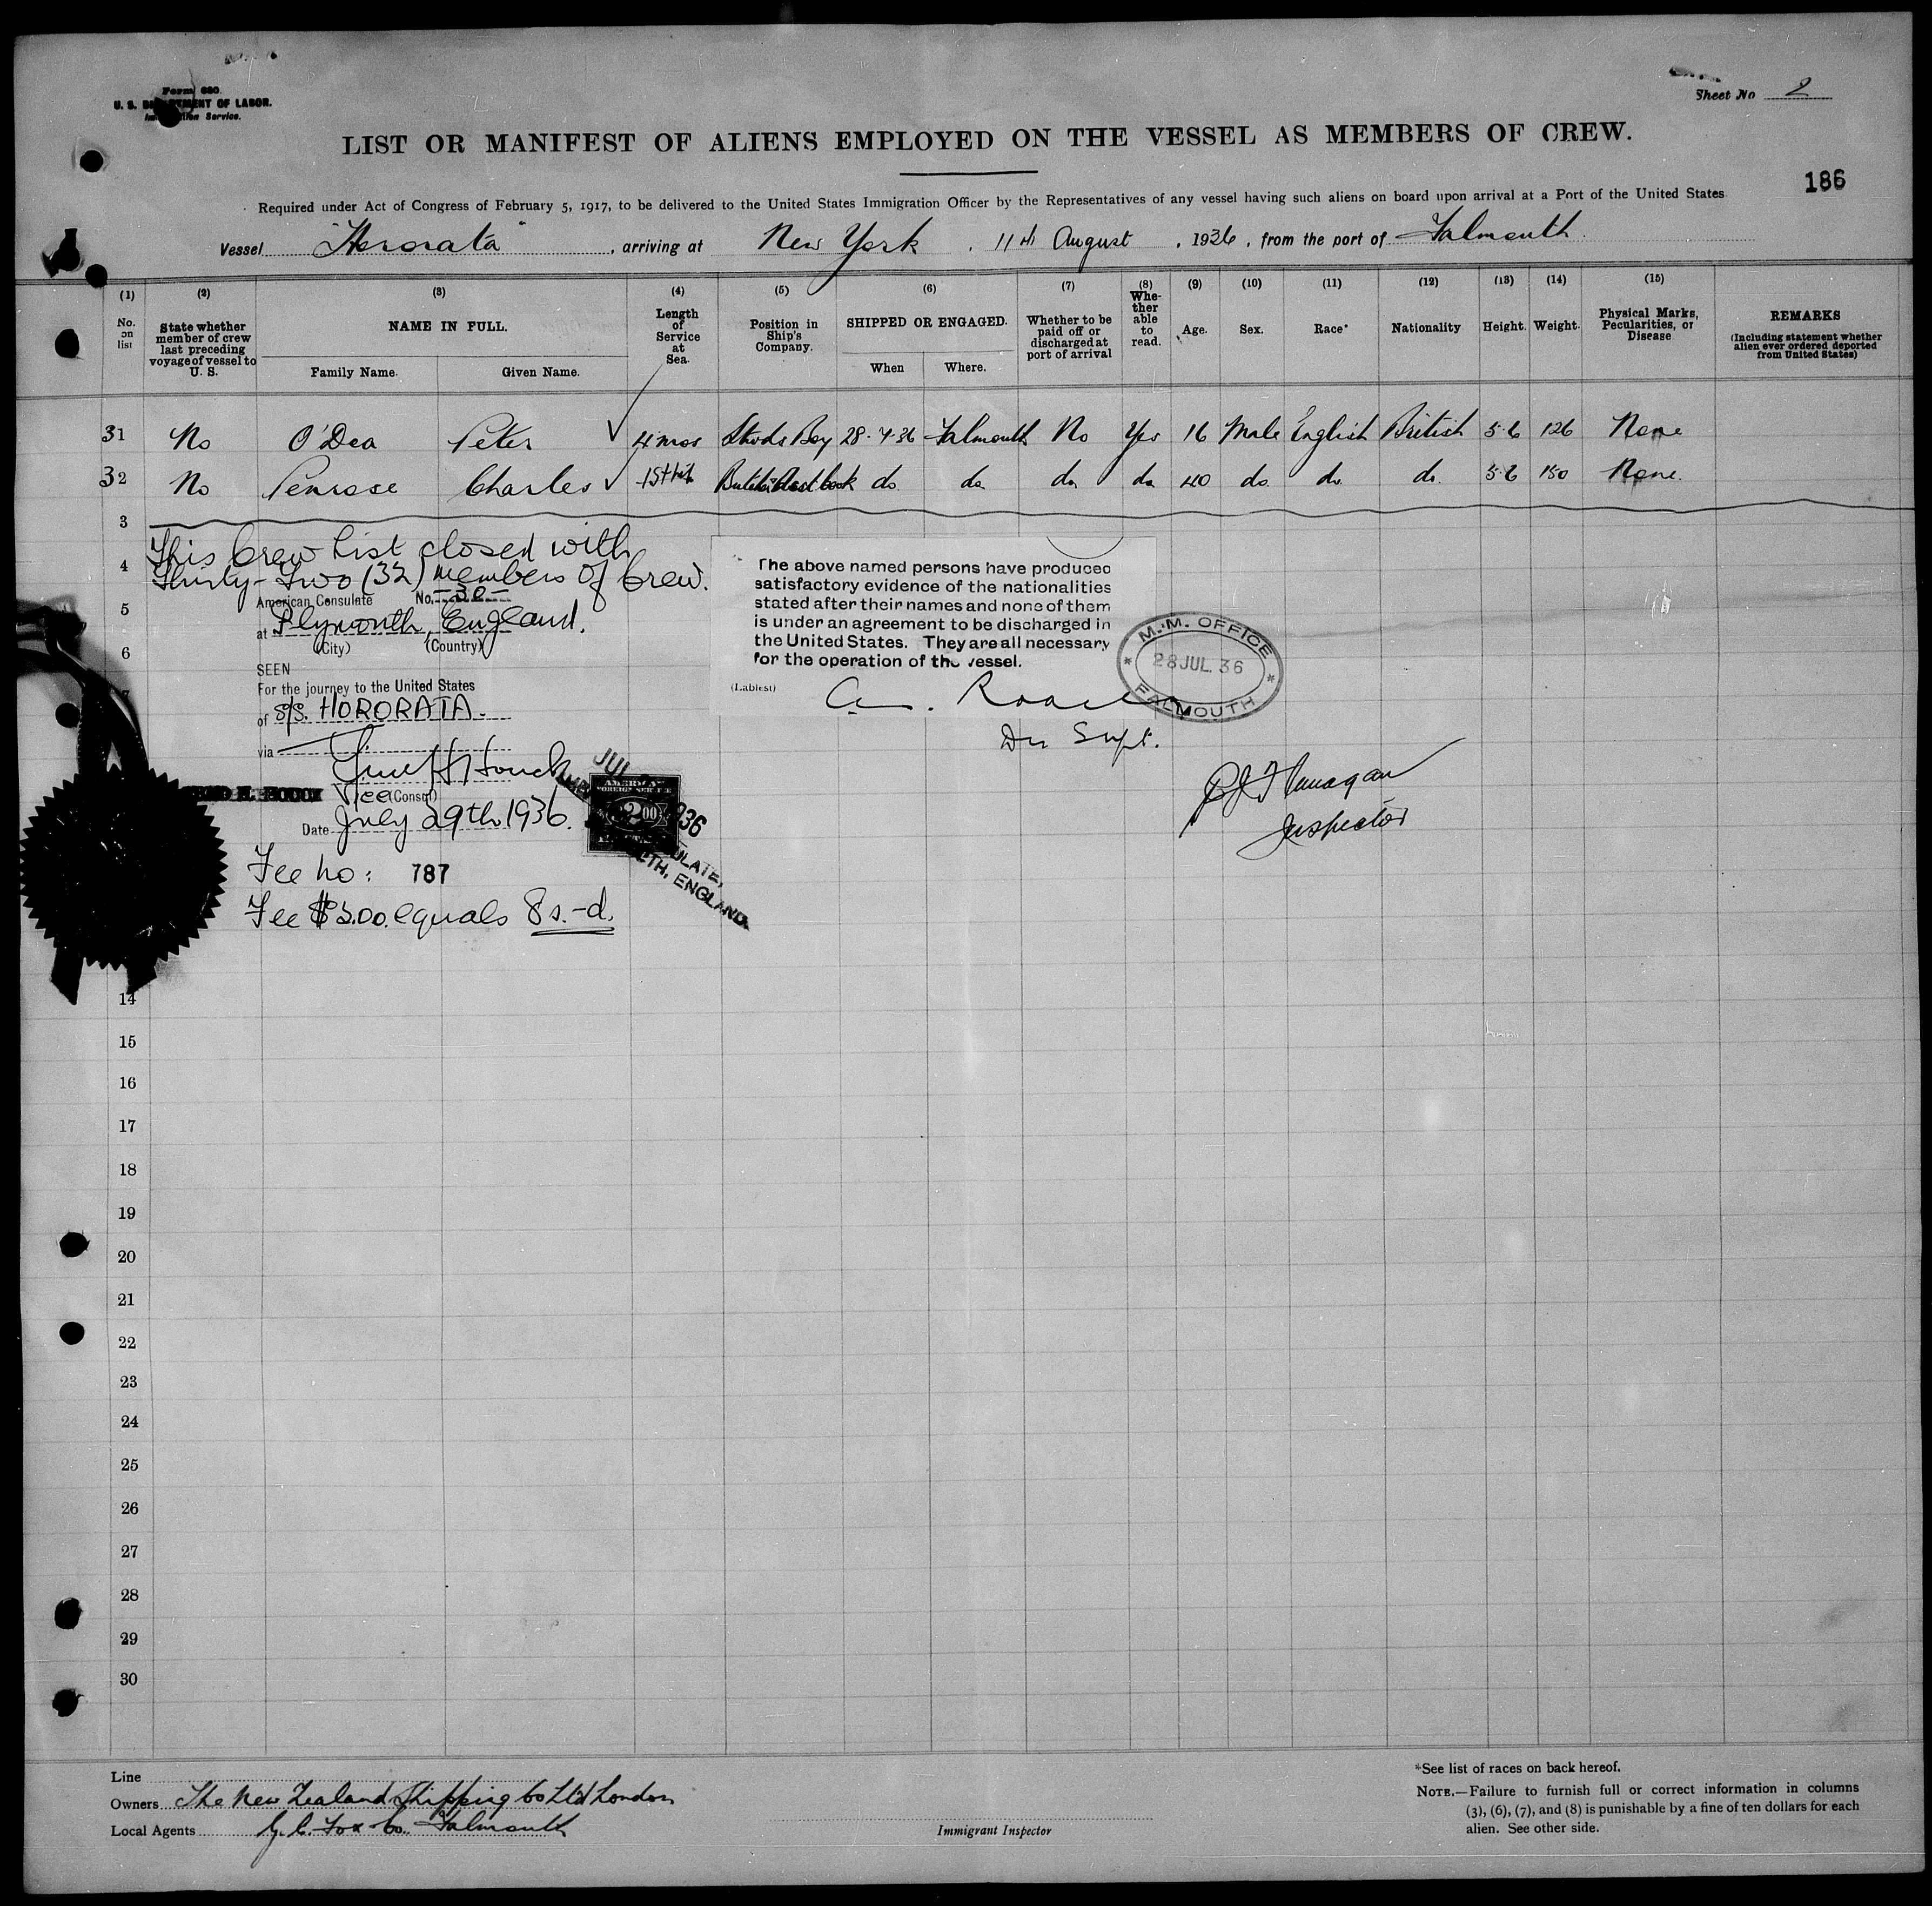 Form 680.
U. S. DEPARTMENT OF LABOR.
Immigration Service.
Sheet No 2
LIST OR MANIFEST OF ALIENS EMPLOYED ON THE VESSEL AS MEMBERS OF CREW.
186
Required under Act of Congress of February 5, 1917, to be delivered to the United States Immigration Officer by the Representatives of any vessel having such aliens on board upon arrival at a Port of the United States
Vessel "Hororata", arriving at New York, 11th August, 1936, from the port of Falmouth
(1) No. on list
(2) State whether member of crew last preceding voyage of vessel to U. S.
(3) NAME IN FULL. Family Name. Given Name.
(4) Length of Service at Sea.
(5) Position in Ship's Company.
(6) SHIPPED OR ENGAGED. When Where.
(7) Whether to be paid off or discharged at port of arrival
(8) Whe-ther able to read.
(9) Age.
(10) Sex.
(11) Race*
(12) Nationality
(13) Height.
(14) Weight.
(15) Physical Marks, Pecularities, or Disease
REMARKS (Including statement whether alien ever ordered deported from United States)
31 No O'Dea Peter 4 mos Boy 28-7-36 Falmouth No Yes 16 Male English British 5-6 126 None
32 No Penrose Charles do do do do 40 do do do 5-6 150 None.
3
4
5
6
7
This Crew List closed with
Thirty-Two (32) members of Crew.
American Consulate No. -30-
at Plymouth, England.
(City) (Country)
SEEN
For the journey to the United States
of S/S. HORORATA.
via
Vice (Consul)
Date July 29th 1936.
Fee No: 787
Fee $2.00. equals 8s.-d.
AMERICAN FOREIGN SERVICE
2.00
ENGLAND
The above named persons have produced
satisfactory evidence of the nationalities
stated after their names and none of them
is under an agreement to be discharged in
the United States. They are all necessary
for the operation of the vessel.
(Lablest)
Supt.
M.M. OFFICE
28 JUL. 36
FALMOUTH
Flanagan
Inspector
14
15
16
17
18
19
20
21
22
23
24
25
26
27
28
29
30
Line
Owners The New Zealand Shipping Co Ltd London
Local Agents G. C. Fox & Co. Falmouth
Immigrant Inspector
*See list of races on back hereof.
NOTE.—Failure to furnish full or correct information in columns
(3), (6), (7), and (8) is punishable by a fine of ten dollars for each
alien. See other side.